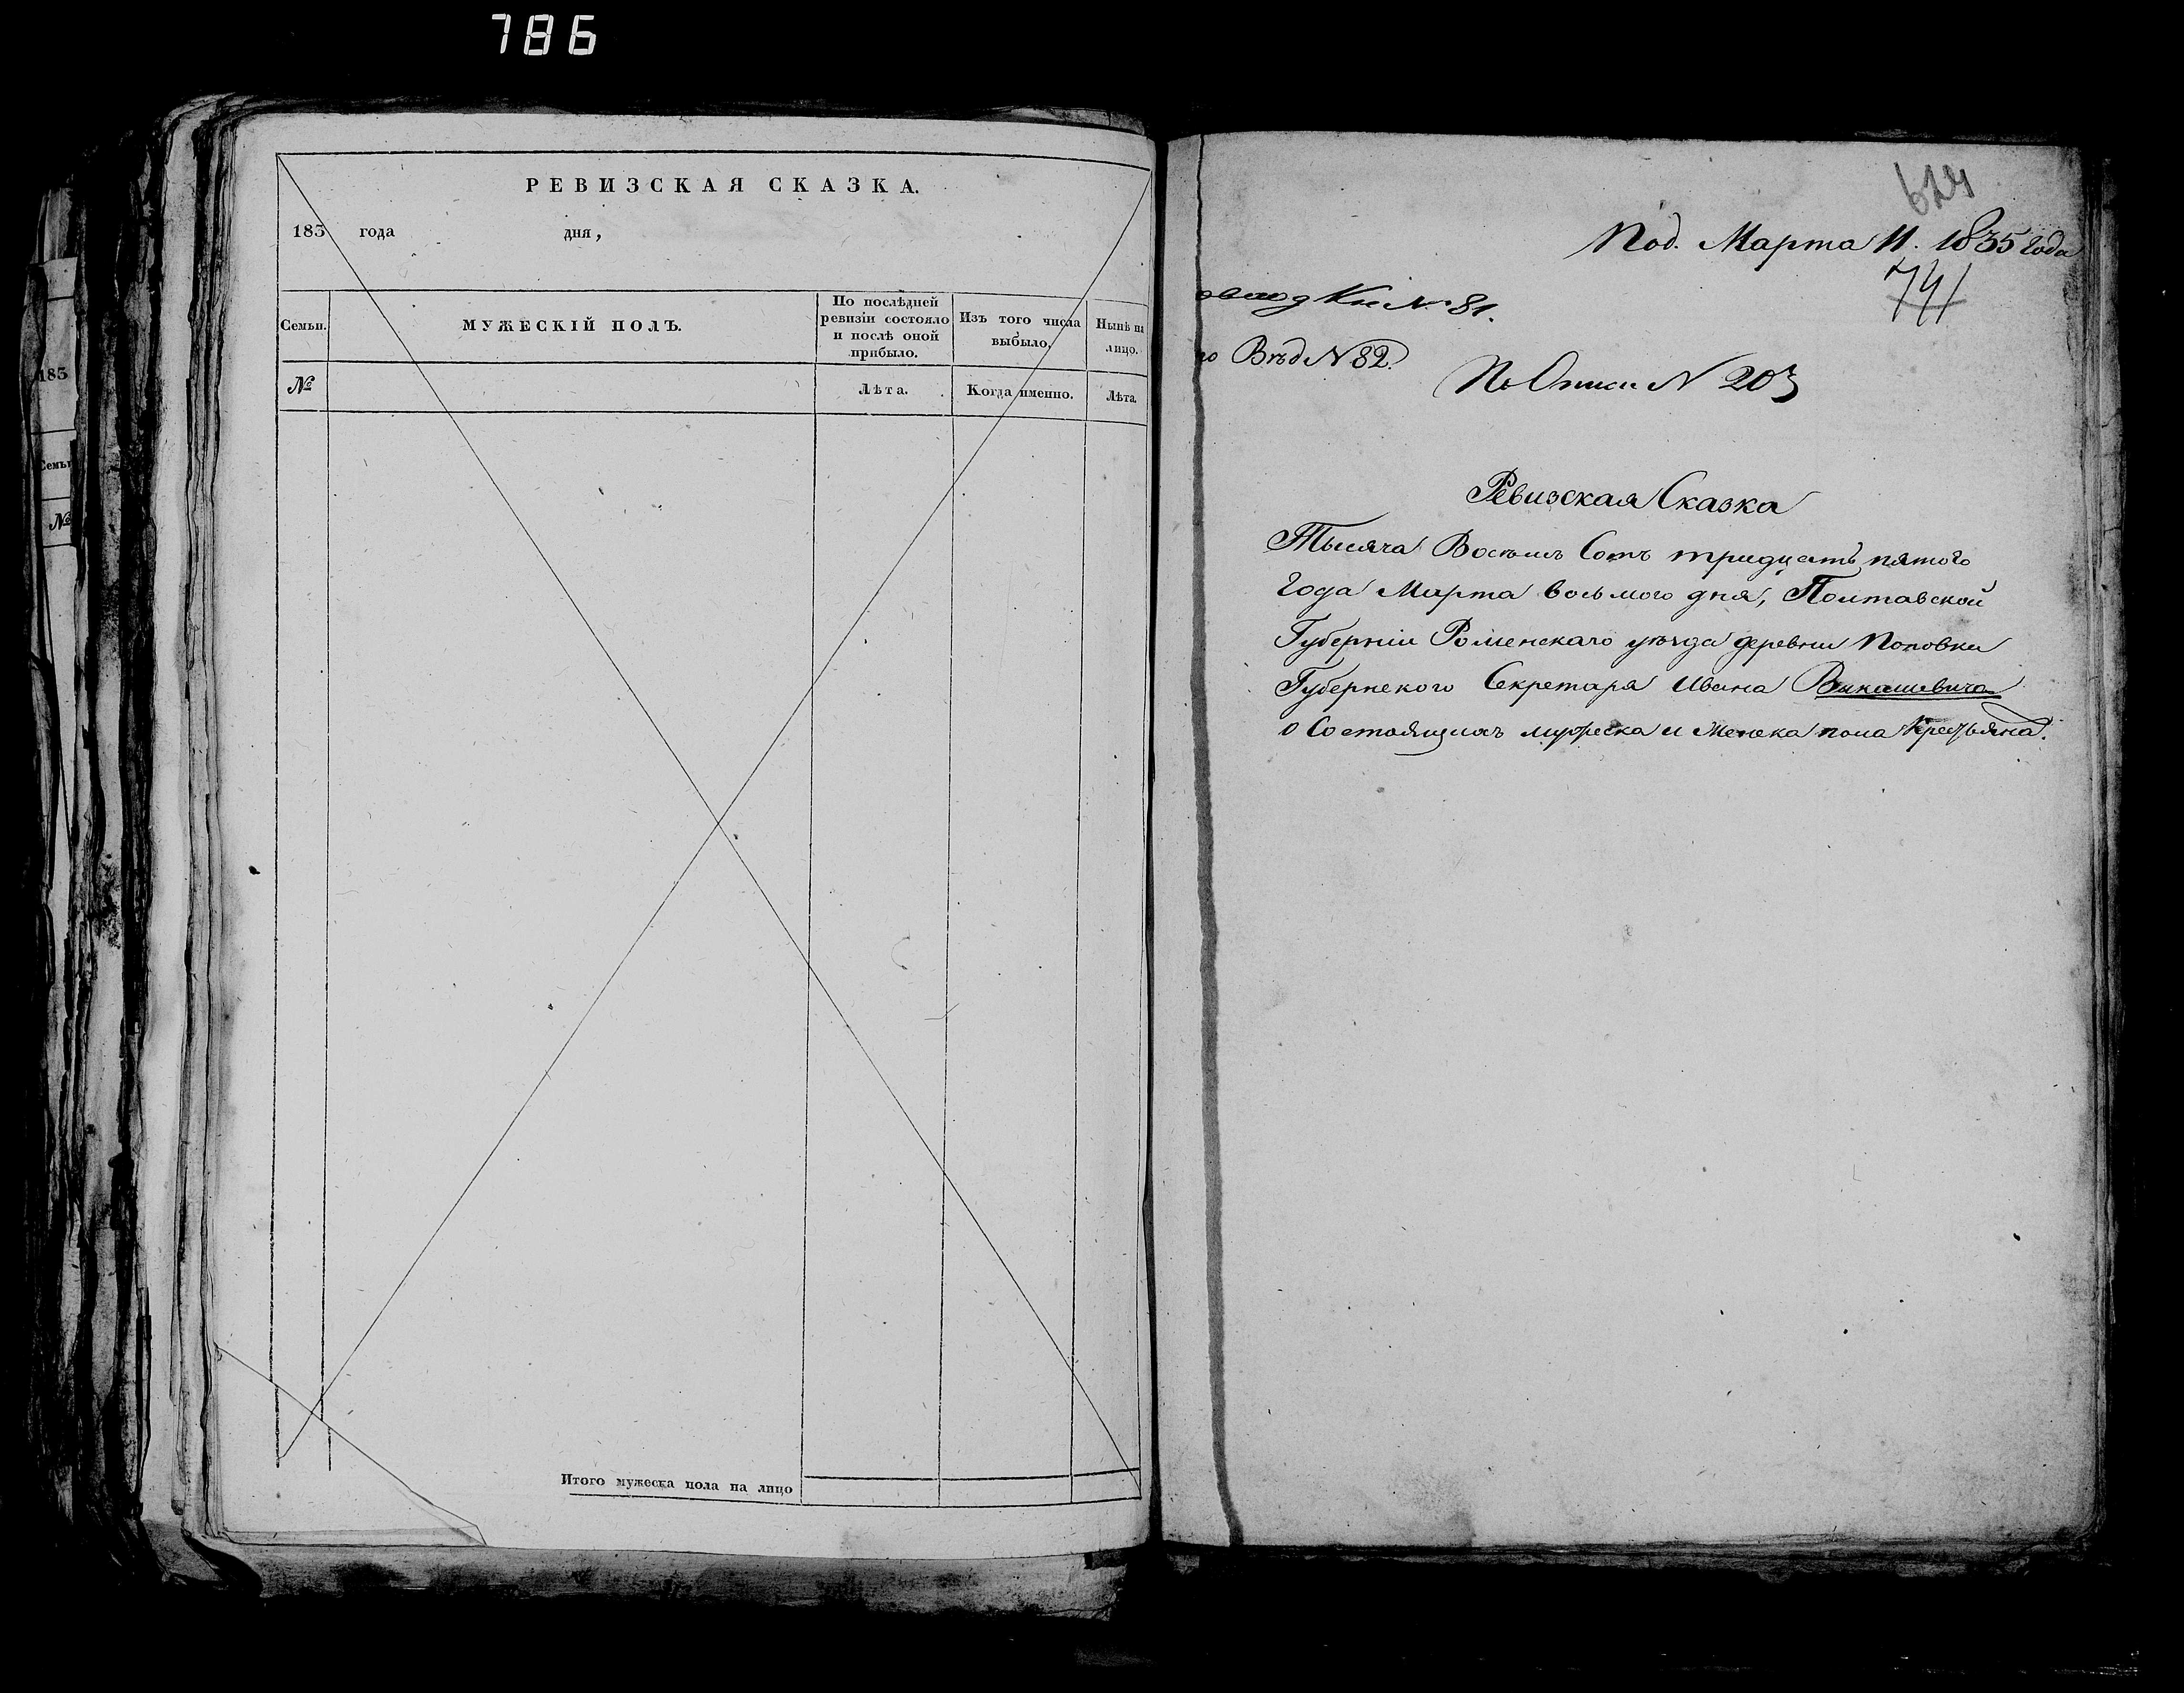 786
183
Семьи
№
РЕВИЗСКАЯ СКАЗКА.
183 года дня,
Семьи.
МУЖЕСКІЙ ПОЛЪ.
По послѣдней ревизіи состояло и послѣ оной прибыло.
Изъ того числа выбыло.
Нынѣ на лицо.
№
Лѣта.
Когда именно.
Лѣта.
Итого мужеска пола на лицо
Под. Марта 11. 1835 года
741
Кн. № 81.
Вѣд № 82.
По Описи № 203
Ревизская Сказка
Тысяча Восемь Сотъ тридцать пятого
Года Марта восьмого дня, Полтавской
Губерніи Роменскаго уѣзда деревни Поповки
Губернского Секретаря Ивана
о Состоящихъ мужеска и Женска пола Крестьяна.